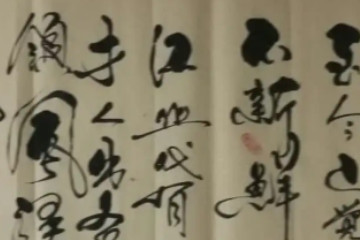 至今已覺
不新鮮
江山代有
才人出各
領風